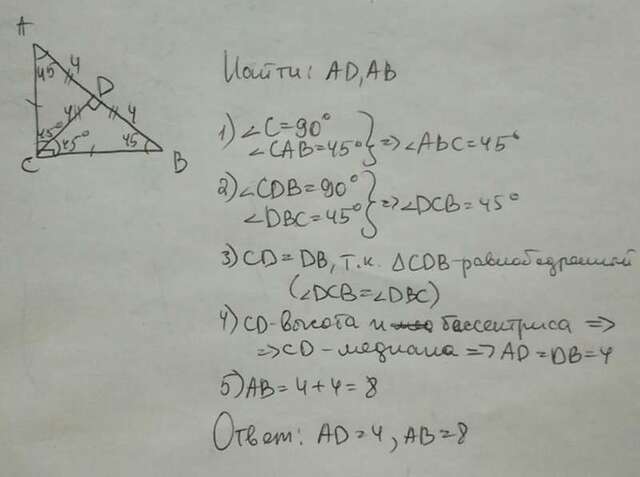 A
45 4
D
4 4
45° 45° 45
C B
Найти: AD, AB
1) ∠C=90°
∠CAB=45° } => ∠ABC=45°
2) ∠CDB=90°
∠DBC=45° } => ∠DCB=45°
3) CD=DB, т.к. ΔCDB-равнобедренный
(∠DCB=∠DBC)
4) CD-высота и бессектриса =>
=> CD-медиана => AD=DB=4
5) AB=4+4=8
Ответ: AD=4, AB=8